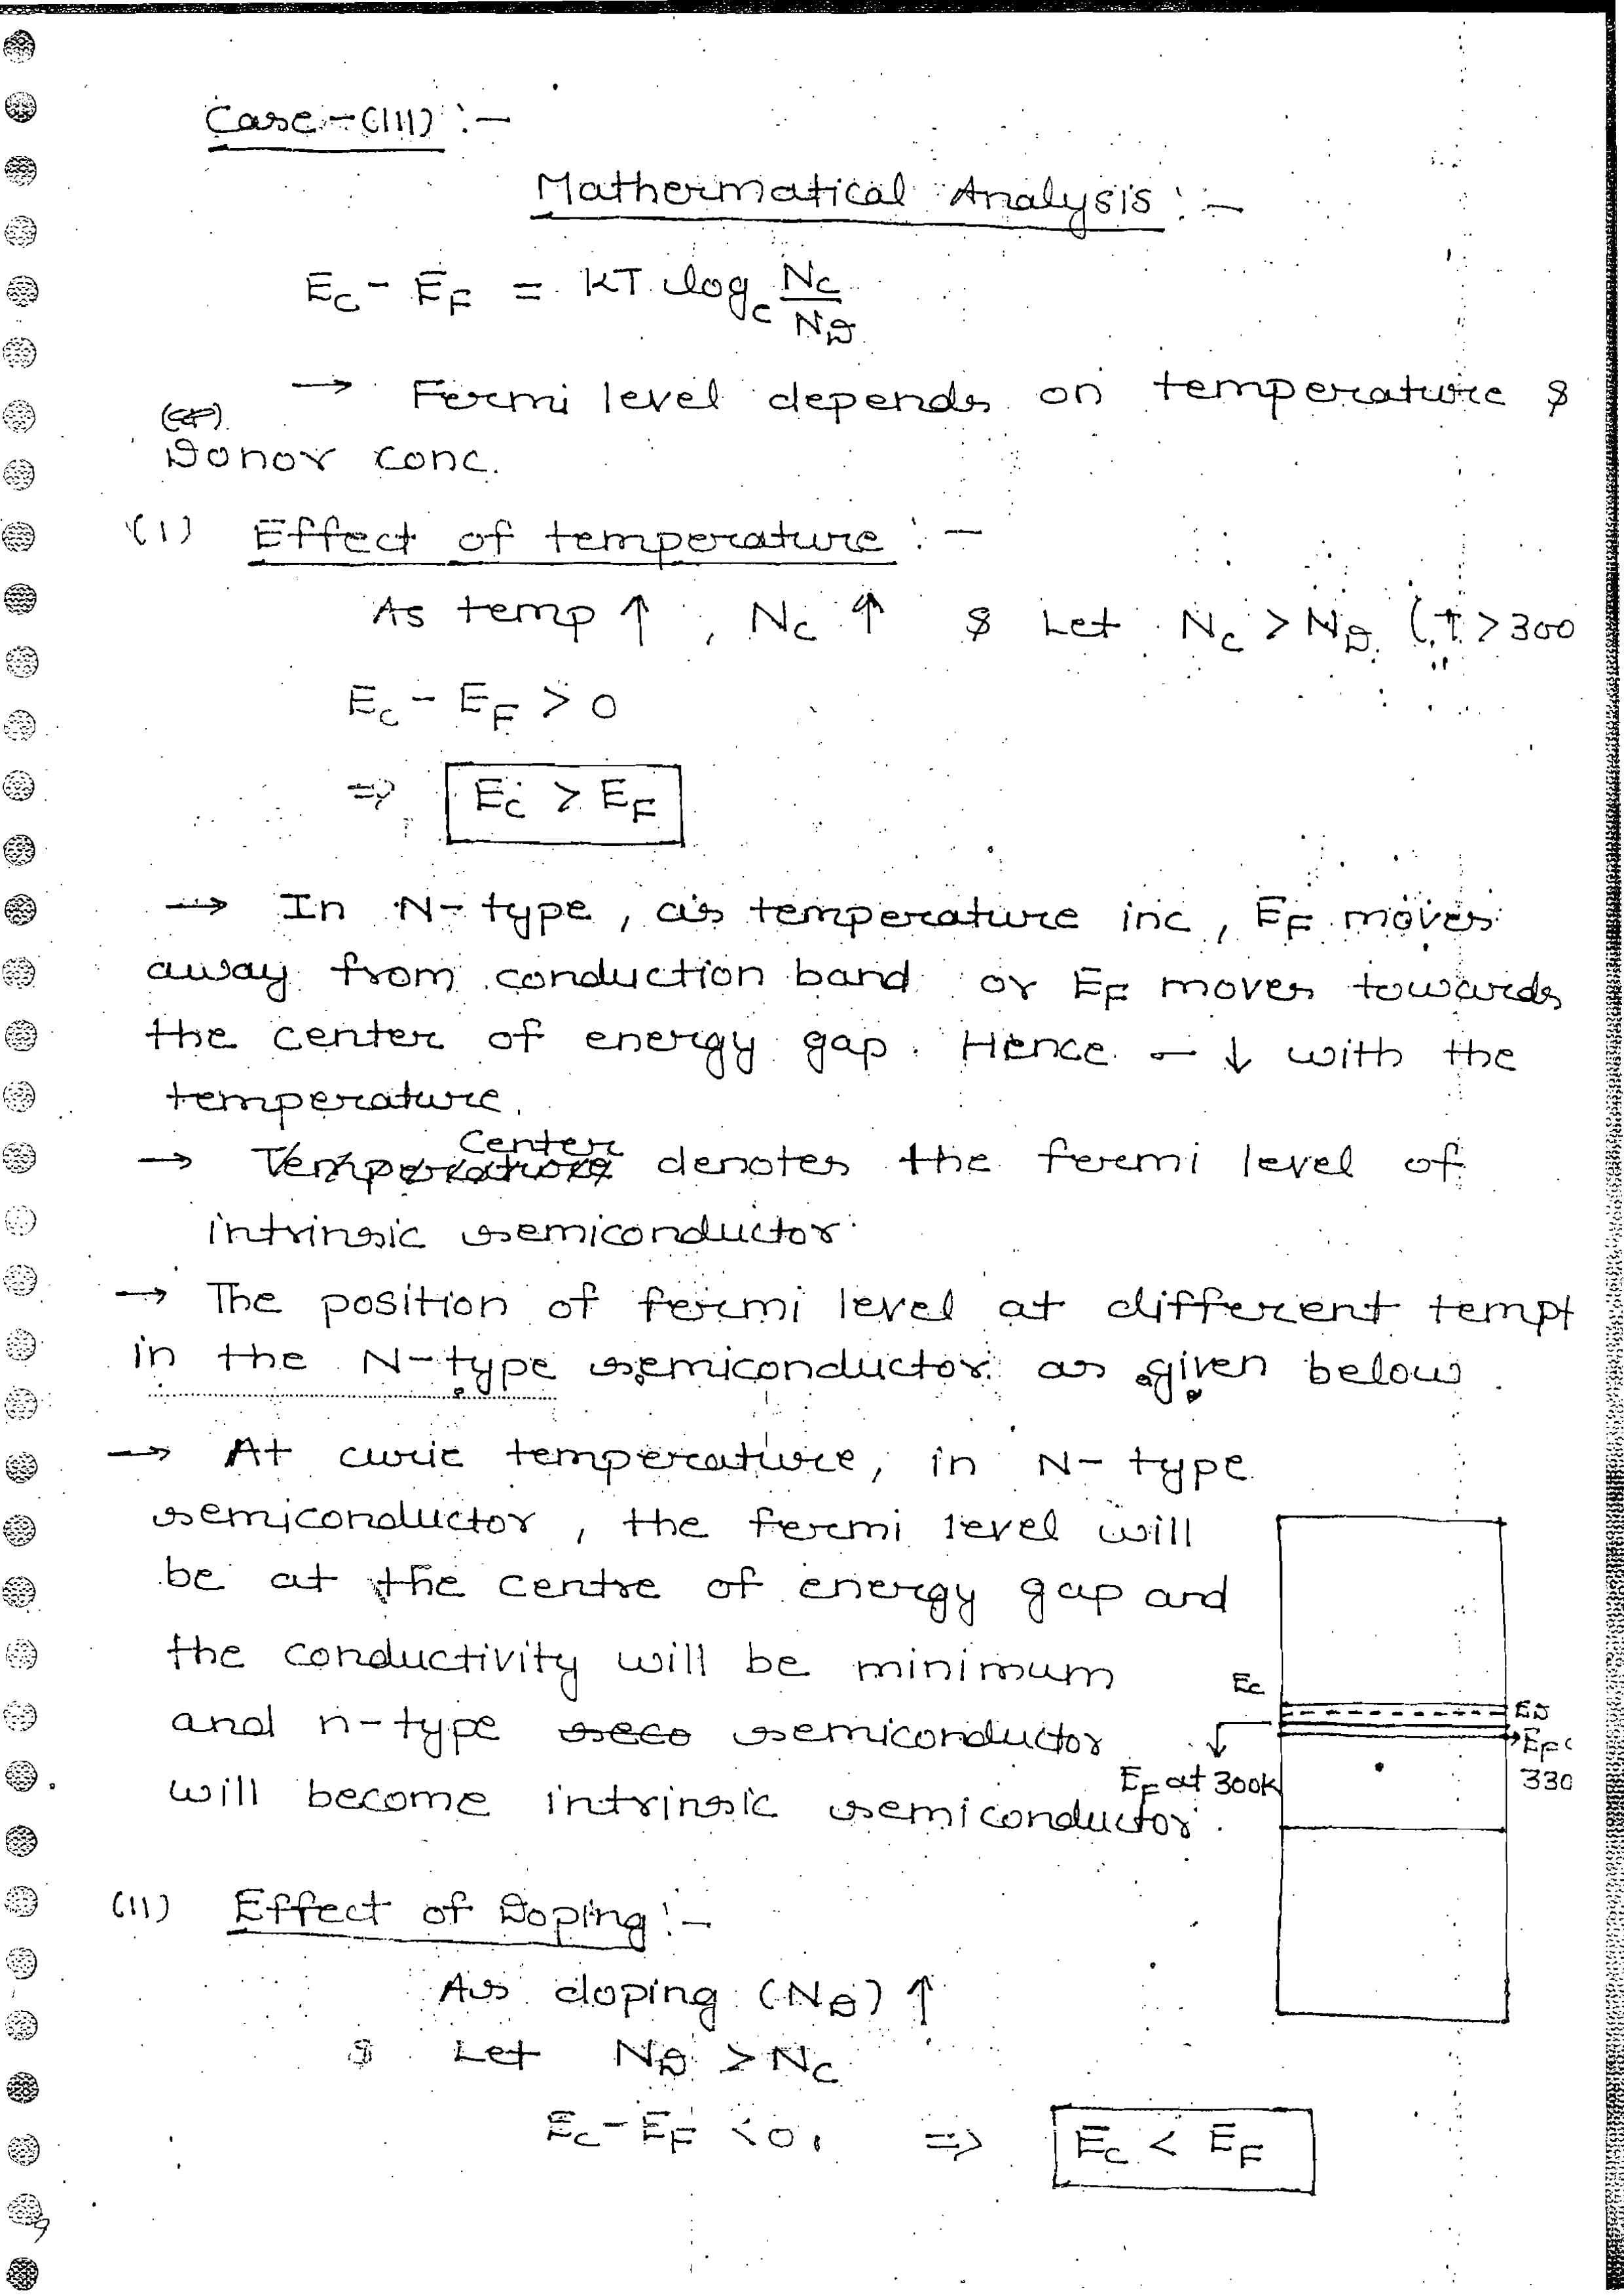 Case-(III) :-
Mathermatical Analysis :-
E_C - E_F = KT log_e N_C/N_D
→ Fermi level depends on temperature &
Donor conc.
(I) Effect of temperature :-
As temp ↑ , N_C ↑ & Let N_C > N_D (T > 300
E_C - E_F > 0
⇒ E_C > E_F
→ In N-type, as temperature inc, E_F moves
away from conduction band or E_F moves towards
the center of energy gap. Hence σ ↓ with the
temperature.
→ Center denotes the fermi level of
intrinsic semiconductor.
→ The position of fermi level at different tempt
in the N-type semiconductor as given below.
→ At curie temperature, in N-type
semiconductor, the fermi level will
be at the centre of energy gap and
the conductivity will be minimum
and n-type semiconductor
will become intrinsic semiconductor.
E_C
E_D
E_F at 300K
E_F
330
(II) Effect of Doping :-
As doping (N_D) ↑
& Let N_D > N_C
E_C - E_F < 0, ⇒ E_C < E_F